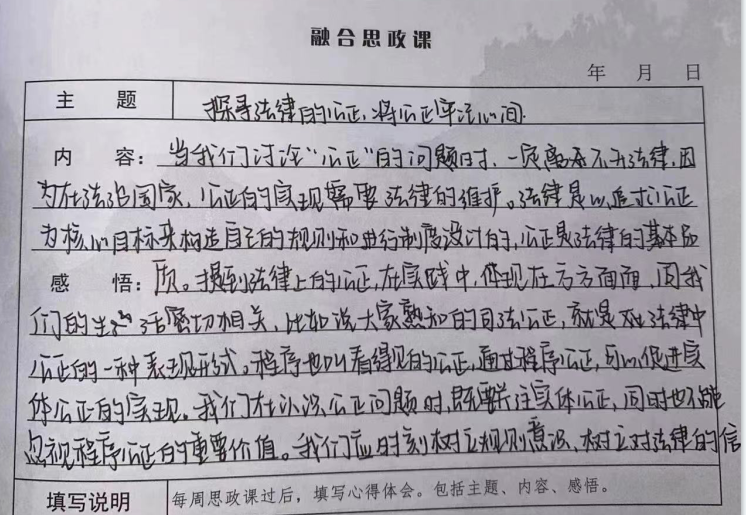 融合思政课
年 月 日
主 题 探寻法律的公正,将公正牢记心间.
内 容:当我们讨论“公正”的问题时,一定离不开法律,因
为在法治国家,公正的实现需要法律的维护。法律是以追求公正
为核心目标来构造自己的规则和进行制度设计的,公正是法律的基本品
感 悟:质。提到法律上的公正,在实践中,体现在方方面面,同我
们的生活密切相关,比如说大家熟知的司法公正,就是对法律中
公正的一种表现形式。程序也叫看得见的公正,通过程序公正,可以促进实
体公正的实现。我们在认识公正问题时,既要关注实体公正,同时也不能
忽视程序公正的重要价值。我们应时刻树立规则意识,树立对法律的信
填写说明 每周思政课过后,填写心得体会。包括主题、内容、感悟。